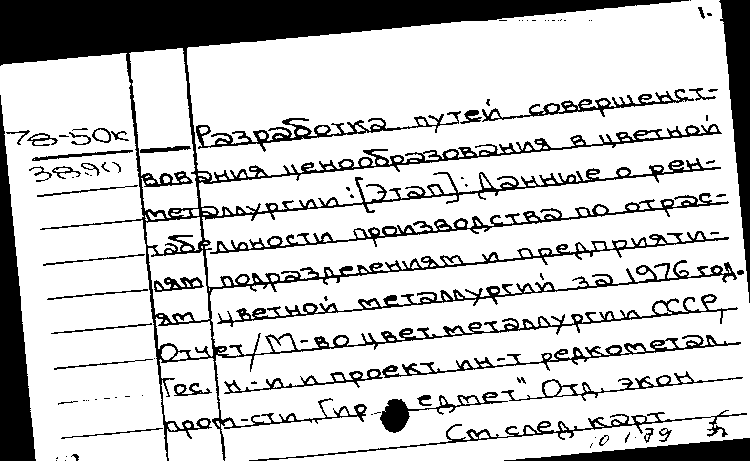 1.
78-50к Разработка путей совершенст-
3890 вования ценообразования в цветной
металлургии: [Этап]: Данные о рен-
табельности производства по отрас-
лям, подразделениям и предприяти-
ям цветной металлургий за 1976 год.
Отчет/М-во цвет. металлургии СССР,
Гос. н.-и. и проект. ин-т редкометал.
пром-сти "Гиредмет". Отд. экон.
См. след. карт.
10 1.79